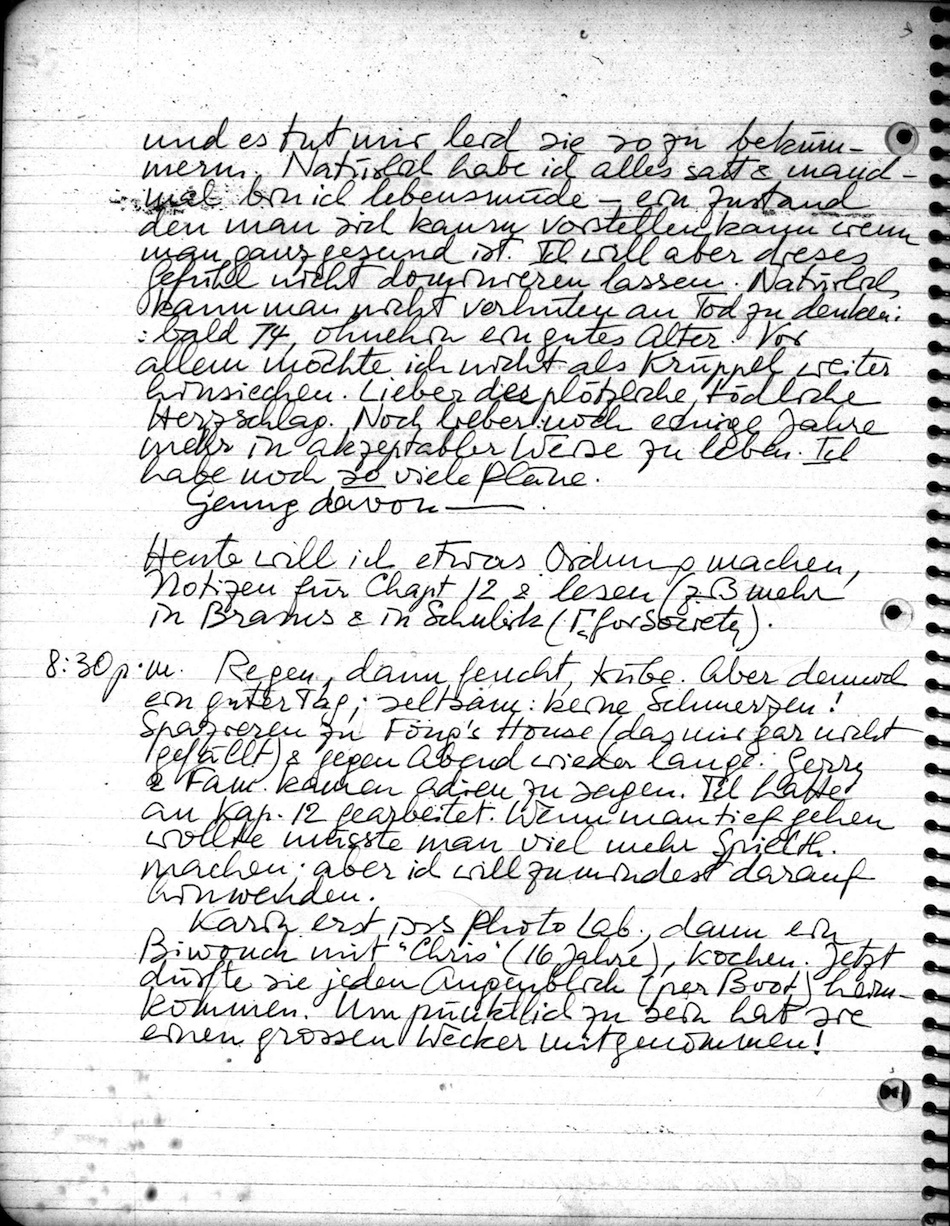 und es tut mir leid sie so zu beküm-
mern. Natürlich habe ich alles satt & manch-
mal bin ich lebensmüde – ein Zustand
den man sich kaum vorstellen kann wenn
man ganz gesund ist. Ich will aber dieses
Gefühl nicht dominieren lassen. Natürlich
kann man nicht verhüten an Tod zu denken:
: bald 74, ohnehin ein gutes Alter. Vor
allem möchte ich nicht als Krüppel weiter
hinsiechen. Lieber der plötzliche, tödliche
Herzschlag. Noch lieber noch einige Jahre
mehr in akzeptabler Weise zu leben. Ich
habe noch so viele Pläne.
Genug davon —
Heute will ich etwas Ordnung machen,
Notizen für Chapt 12 & lesen (z B mehr
in Brams & in Schubik ( for Society).
8:30 p.m. Regen, dann feucht, trübe. Aber dennoch
ein guter Tag; seltsam: keine Schmerzen!
Spazieren zu Fong's House (das mir gar nicht
gefällt) & gegen Abend wieder lange. Gerry
& Fam. kamen adieu zu sagen. Ich hatte
an Kap. 12 gearbeitet. Wenn man tief gehen
wollte müsste man viel mehr Spielth.
machen; aber ich will zumindest darauf
hinwenden.
Karin erst ins Photo Lab., dann ein
Biwouch mit "Chris" (16 Jahre), kochen. Jetzt
dürfte sie jeden Augenblick (per Boot) heim-
kommen. Um pünktlich zu sein hat sie
einen grossen Wecker mitgenommen!